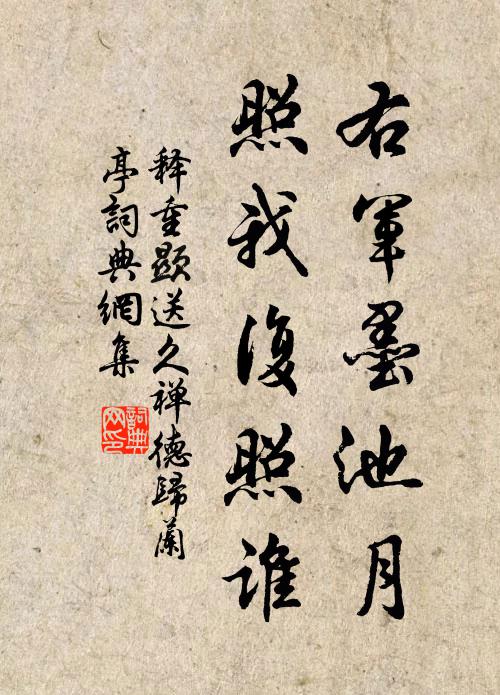 右軍墨池月
照我復照誰
釋重顯送久禪德歸蘭
亭詞典網集
詞典网印